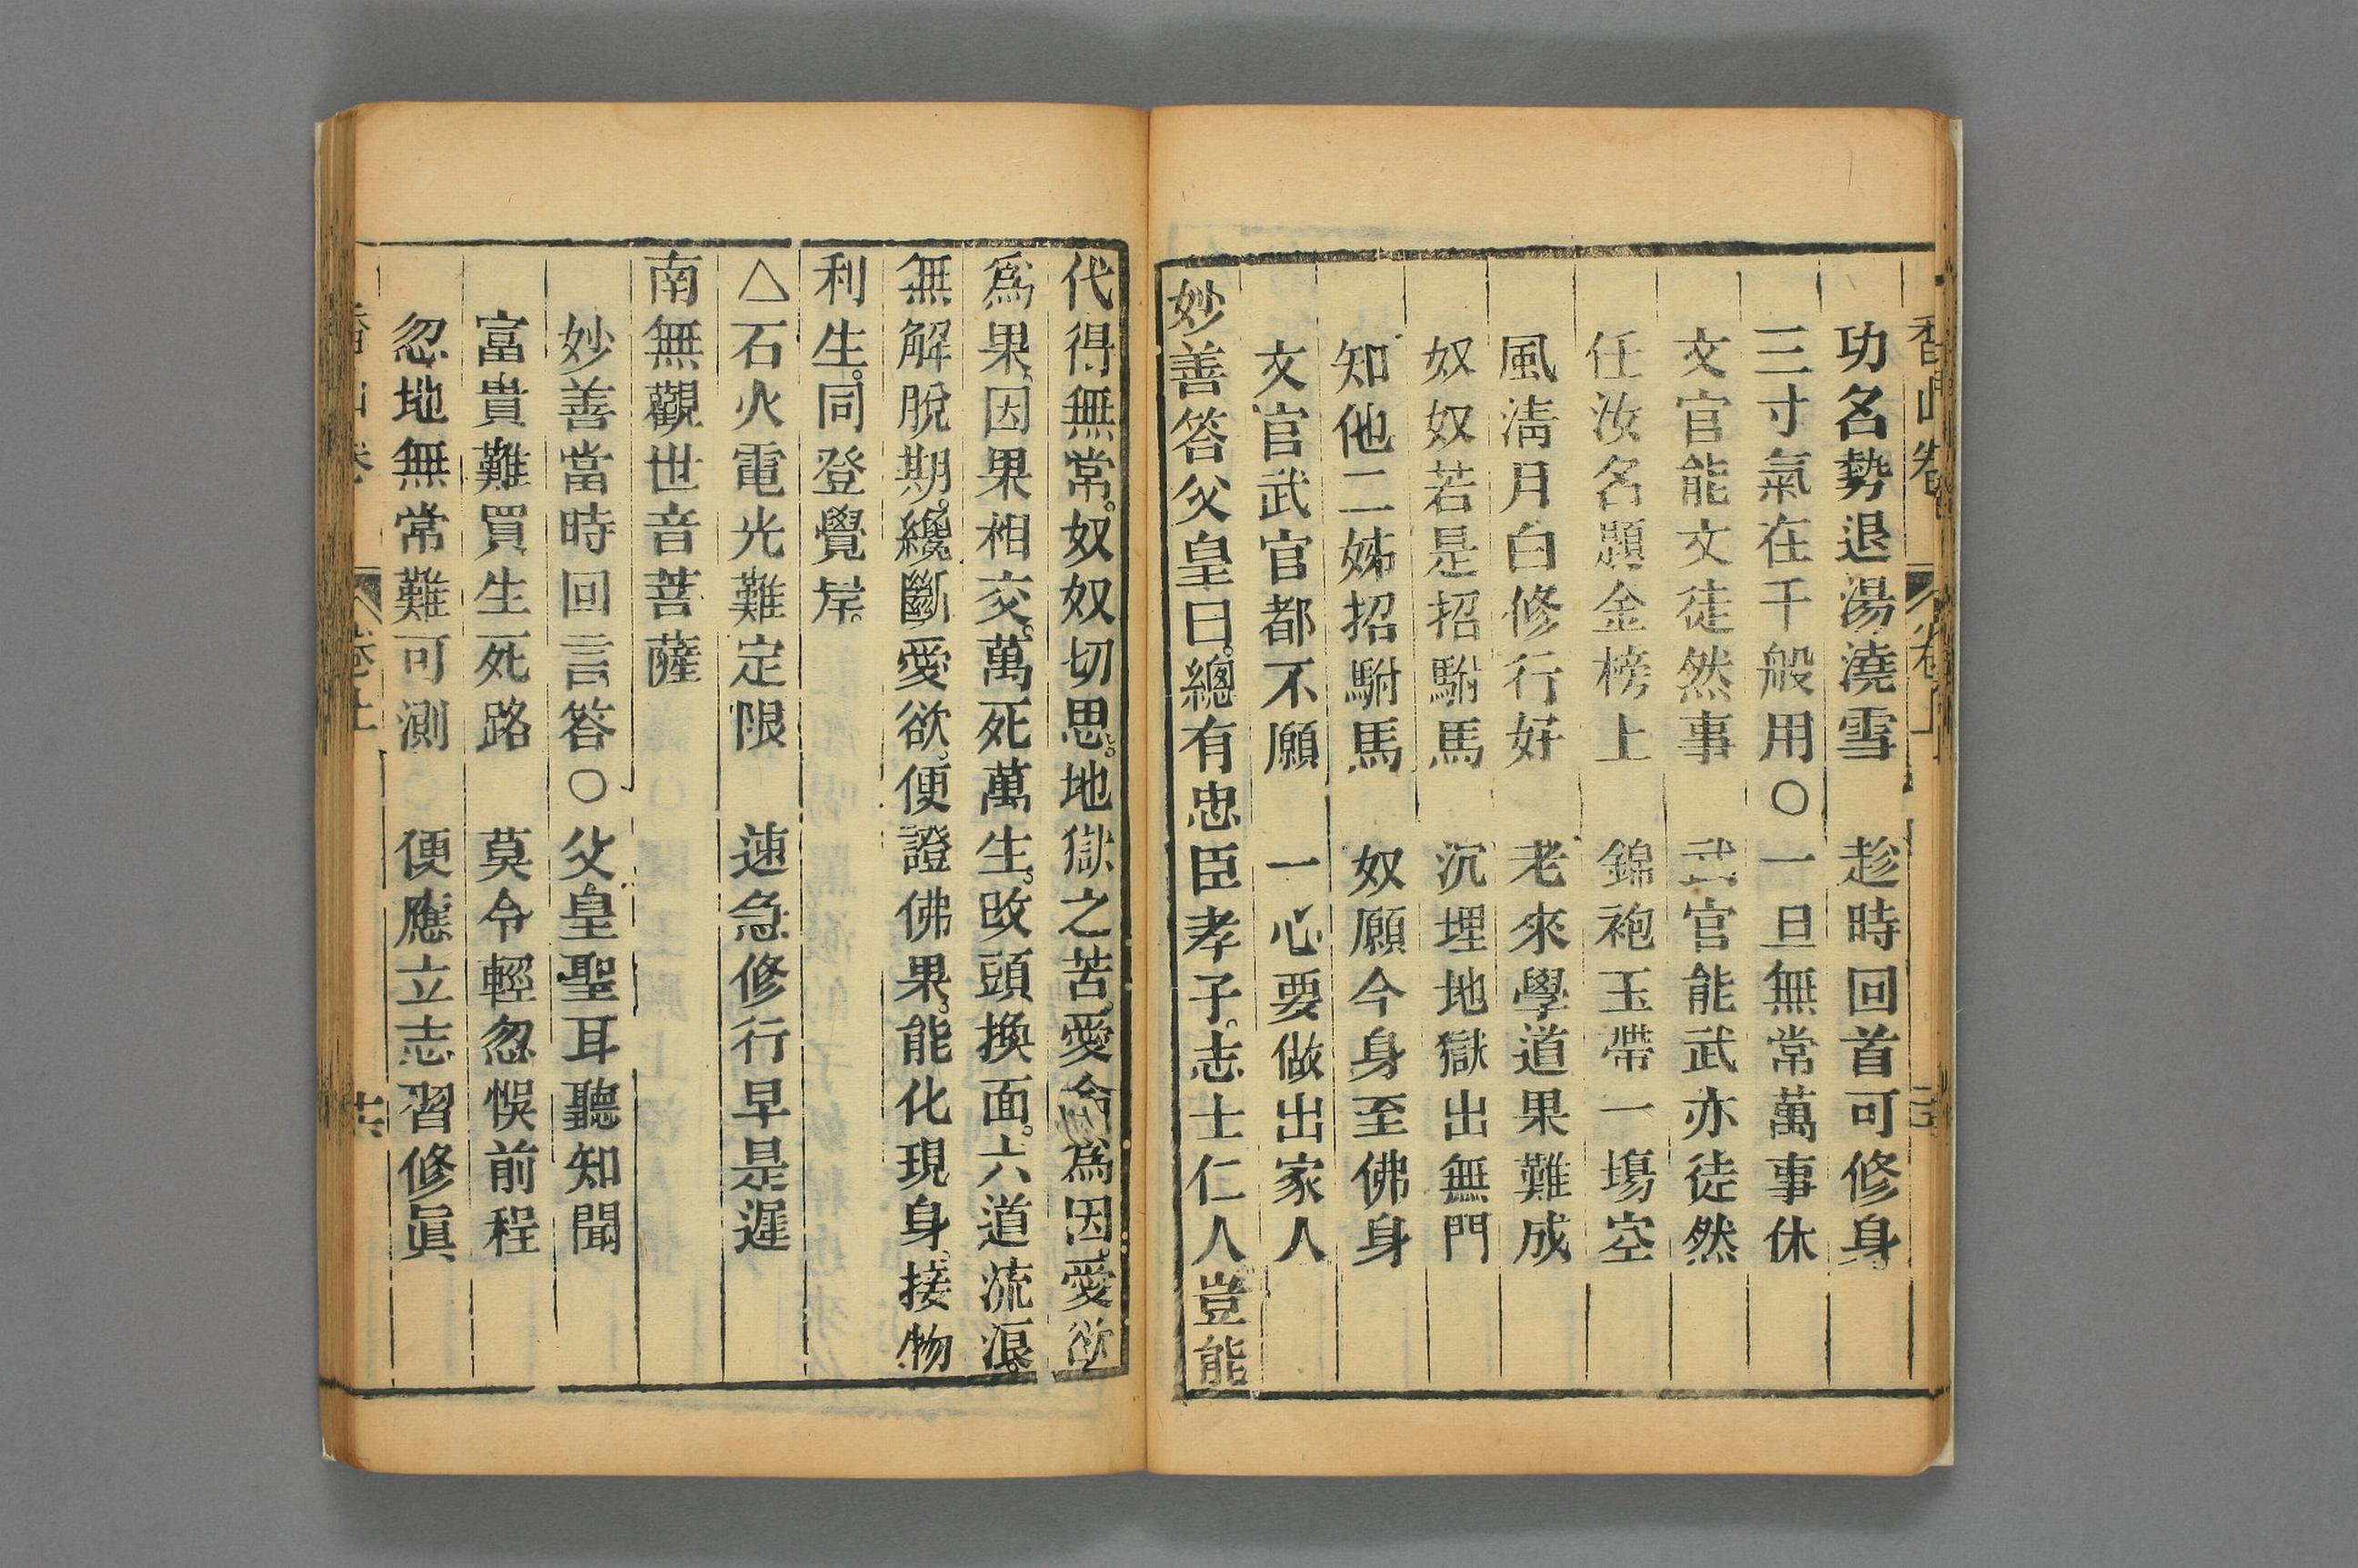 香山卷 卷上
功名勢退湯澆雪 趁時回首可修身
三寸氣在千般用〇一旦無常萬事休
文官能文徒然事 武官能武亦徒然
任汝名題金榜上 錦袍玉帶一塲空
風淸月白修行好 老來學道果難成
奴奴若是招駙馬 沉埋地獄出無門
知他二姊招駙馬 奴願今身至佛身
文官武官都不願 一心要做出家人
妙善答父皇曰。總有忠臣孝子。志士仁人豈能
代得無常。奴奴切思。地獄之苦。愛命爲因。愛欲
爲果。因果相交。萬死萬生。改頭換面。六道流浪。
無解脫期。纔斷愛欲。便證佛果。能化現身。接物
利生。同登覺岸。
△石火電光難定限 速急修行早是遲
南無觀世音菩薩
妙善當時回言答〇父皇聖耳聽知聞
富貴難買生死路 莫令輕忽悞前程
忽地無常難可測 便應立志習修眞
香山卷 卷上